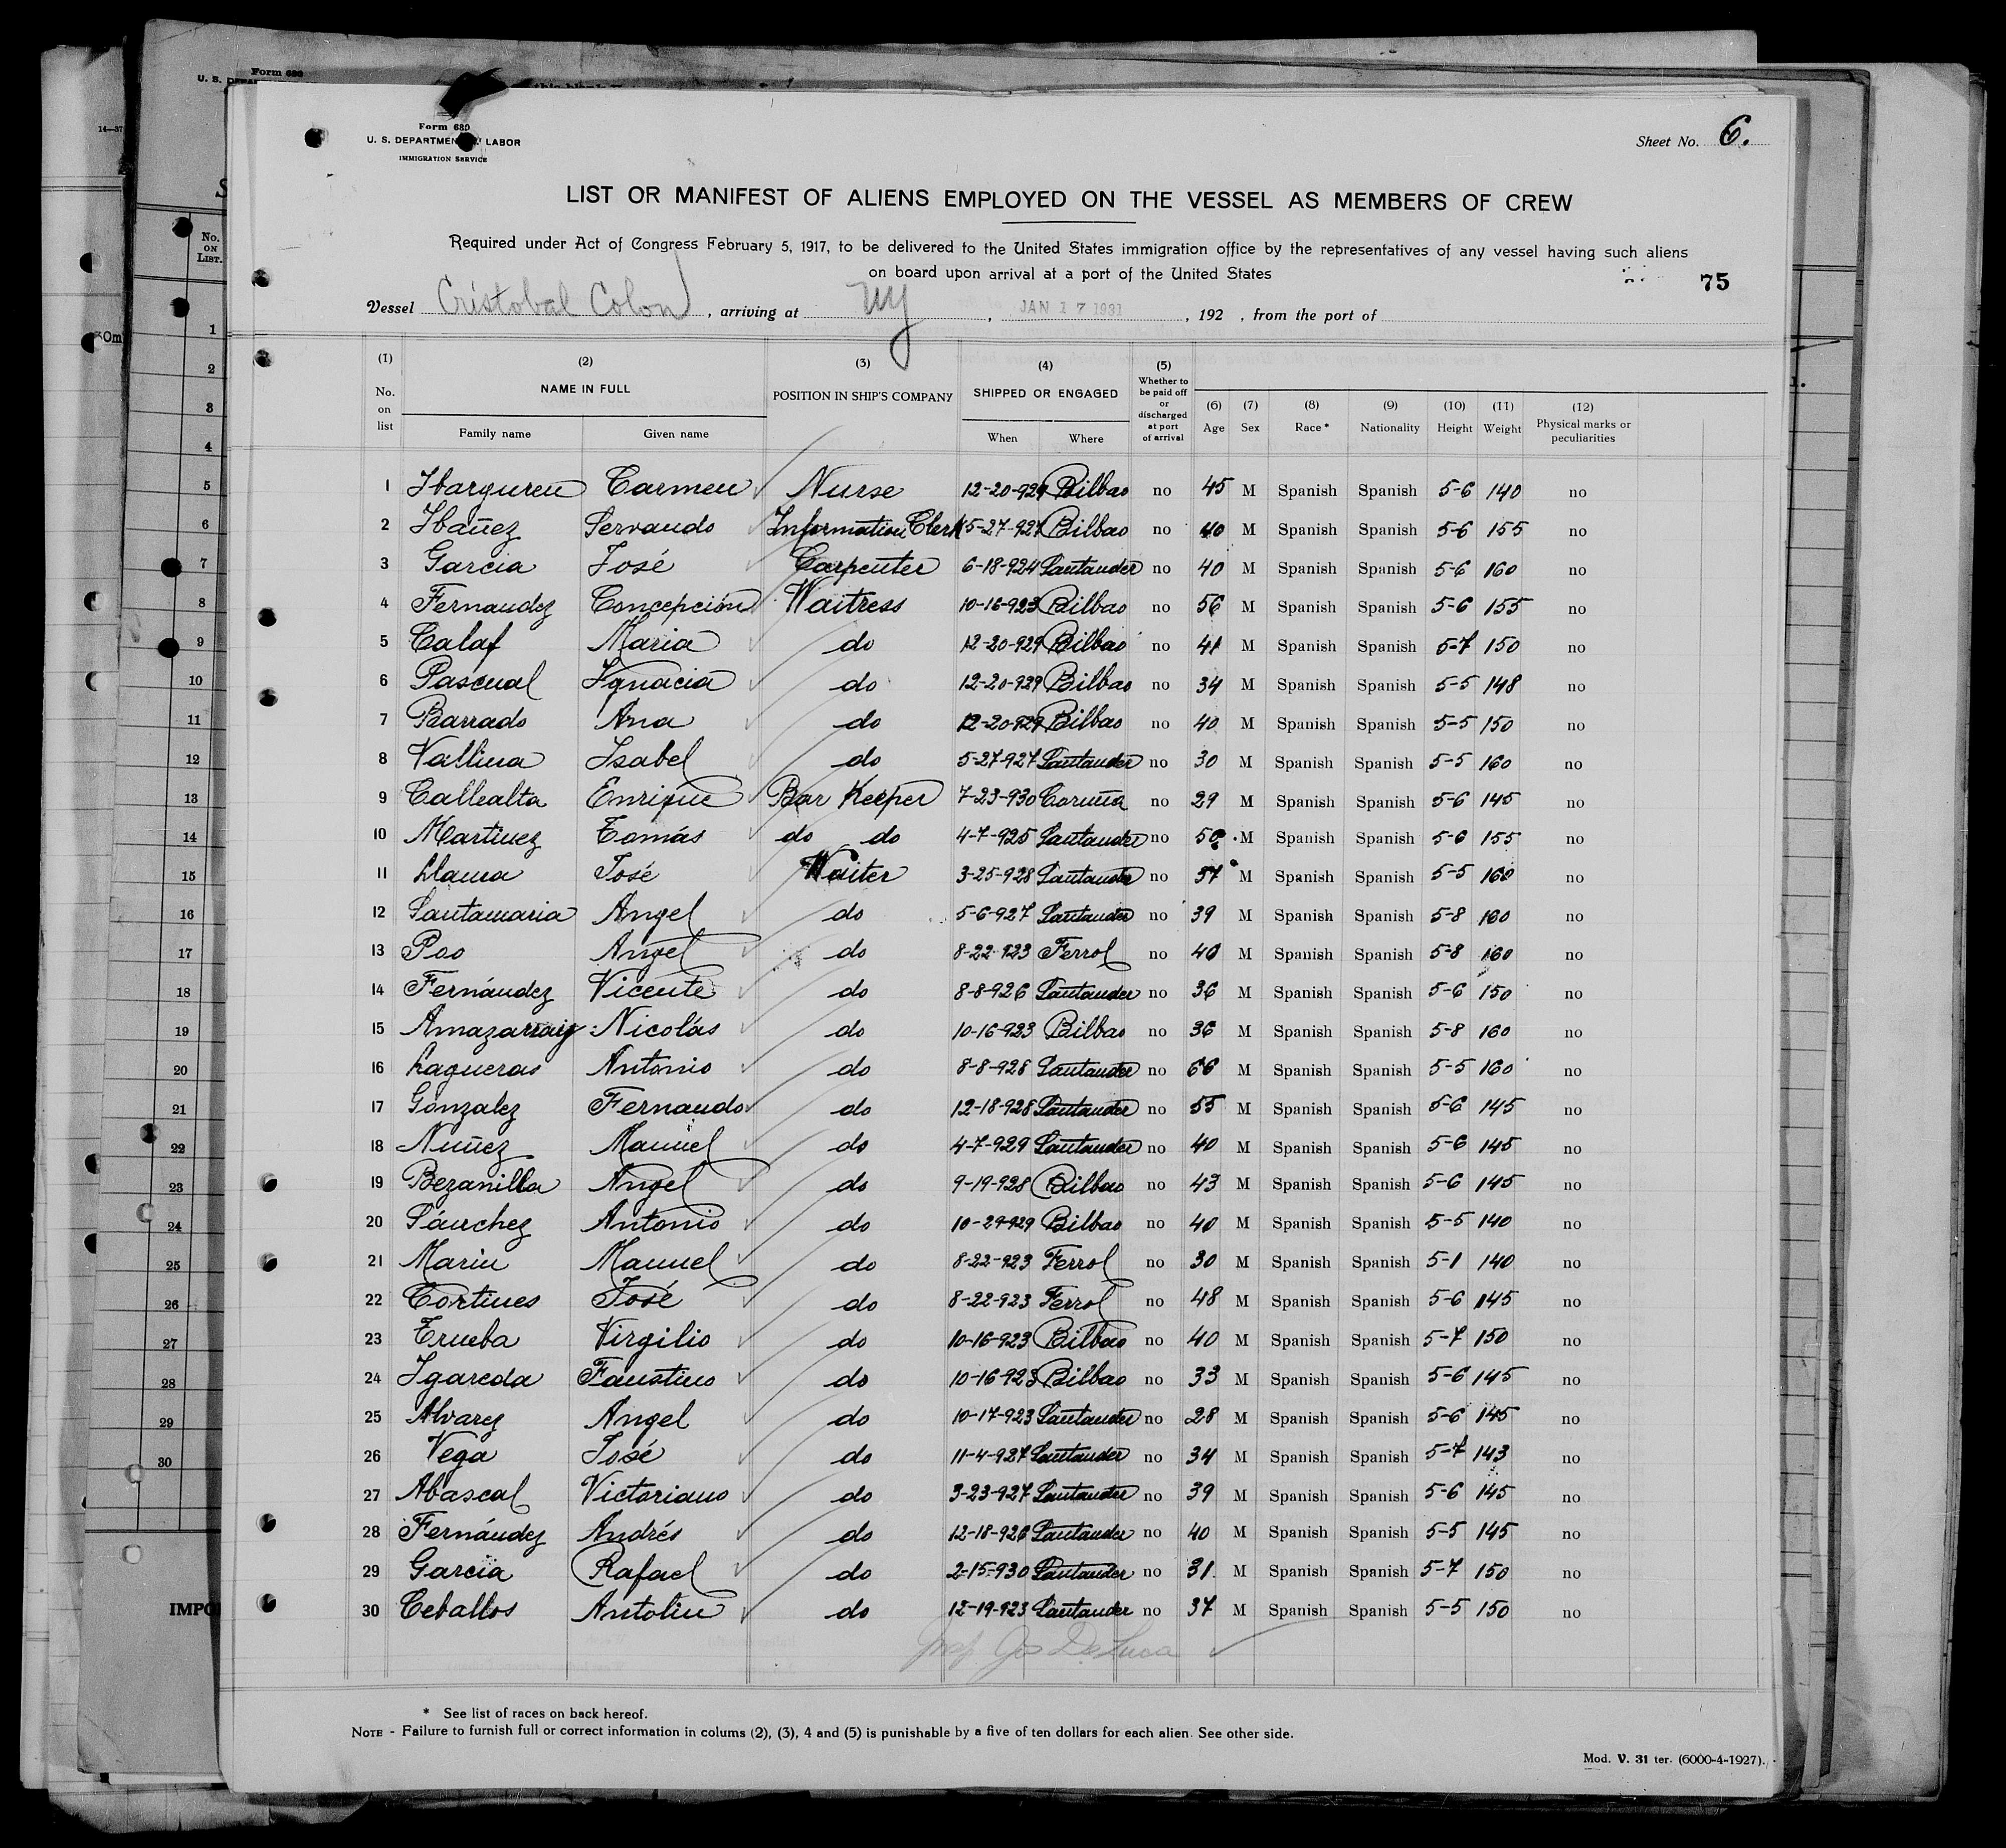 Form 680
U. S. DEPARTMENT LABOR
IMMIGRATION SERVICE
Sheet No. 6.
LIST OR MANIFEST OF ALIENS EMPLOYED ON THE VESSEL AS MEMBERS OF CREW
Required under Act of Congress February 5, 1917, to be delivered to the United States immigration office by the representatives of any vessel having such aliens
on board upon arrival at a port of the United States
75
Vessel Cristobal Colon, arriving at NY, JAN 17 1931, 192 , from the port of
(1) No. on list (2) NAME IN FULL Family name Given name (3) POSITION IN SHIP'S COMPANY (4) SHIPPED OR ENGAGED When Where (5) Whether to be paid off or discharged at port of arrival (6) Age (7) Sex (8) Race* (9) Nationality (10) Height (11) Weight (12) Physical marks or peculiarities
1 Ibarguren Carmen Nurse 12-20-929 Bilbao no 45 M Spanish Spanish 5-6 140 no
2 Ibañez Servando Information Clerk 5-27-927 Bilbao no 40 M Spanish Spanish 5-6 155 no
3 Garcia José Carpenter 6-18-924 Santander no 40 M Spanish Spanish 5-6 160 no
4 Fernandez Concepción Waitress 10-16-923 Bilbao no 56 M Spanish Spanish 5-6 155 no
5 Calaf Maria do 12-20-929 Bilbao no 41 M Spanish Spanish 5-7 150 no
6 Pascual Ignacia do 12-20-929 Bilbao no 34 M Spanish Spanish 5-5 148 no
7 Barrado Ana do 12-20-929 Bilbao no 40 M Spanish Spanish 5-5 150 no
8 Vallina Isabel do 5-27-927 Santander no 30 M Spanish Spanish 5-5 160 no
9 Callealta Enrique Bar Keeper 7-23-930 Coruña no 29 M Spanish Spanish 5-6 145 no
10 Martinez Tomás do do 4-7-925 Santander no M Spanish Spanish 5-6 155 no
11 Llama José Waiter 3-25-928 Santander no 37 M Spanish Spanish 5-5 160 no
12 Santamaria Angel do 5-6-927 Santander no 39 M Spanish Spanish 5-8 160 no
13 Poo Angel do 8-22-923 Ferrol no 40 M Spanish Spanish 5-8 160 no
14 Fernández Vicente do 8-8-926 Santander no 36 M Spanish Spanish 5-6 150 no
15 Nicolás do 10-16-923 Bilbao no 36 M Spanish Spanish 5-8 160 no
16 Lagueras Antonio do 8-8-928 Santander no 66 M Spanish Spanish 5-5 160 no
17 Gonzalez Fernando do 12-18-928 Santander no 55 M Spanish Spanish 5-6 145 no
18 Nuñez Manuel do 4-7-929 Santander no 40 M Spanish Spanish 5-6 145 no
19 Bezanilla Angel do 9-19-928 Bilbao no 43 M Spanish Spanish 5-6 145 no
20 Sánchez Antonio do 10-29-929 Bilbao no 40 M Spanish Spanish 5-5 140 no
21 Marin Manuel do 8-22-923 Ferrol no 30 M Spanish Spanish 5-1 140 no
22 Cortines José do 8-22-923 Ferrol no 48 M Spanish Spanish 5-6 145 no
23 Trueba Virgilio do 10-16-923 Bilbao no 40 M Spanish Spanish 5-7 150 no
24 Igareda Faustino do 10-16-923 Bilbao no 33 M Spanish Spanish 5-6 145 no
25 Alvarez Angel do 10-17-923 Santander no 28 M Spanish Spanish 5-6 145 no
26 Vega José do 11-4-927 Santander no 34 M Spanish Spanish 5-7 143 no
27 Abascal Victoriano do 3-23-927 Santander no 39 M Spanish Spanish 5-6 145 no
28 Fernández Andrés do 12-18-926 Santander no 40 M Spanish Spanish 5-5 145 no
29 Garcia Rafael do 2-15-930 Santander no 31 M Spanish Spanish 5-7 150 no
30 Ceballos Antolin do 12-19-923 Santander no 37 M Spanish Spanish 5-5 150 no
Jos DeLuca
* See list of races on back hereof.
NOTE - Failure to furnish full or correct information in colums (2), (3), 4 and (5) is punishable by a five of ten dollars for each alien. See other side.
Mod. V. 31 ter. (6000-4-1927).